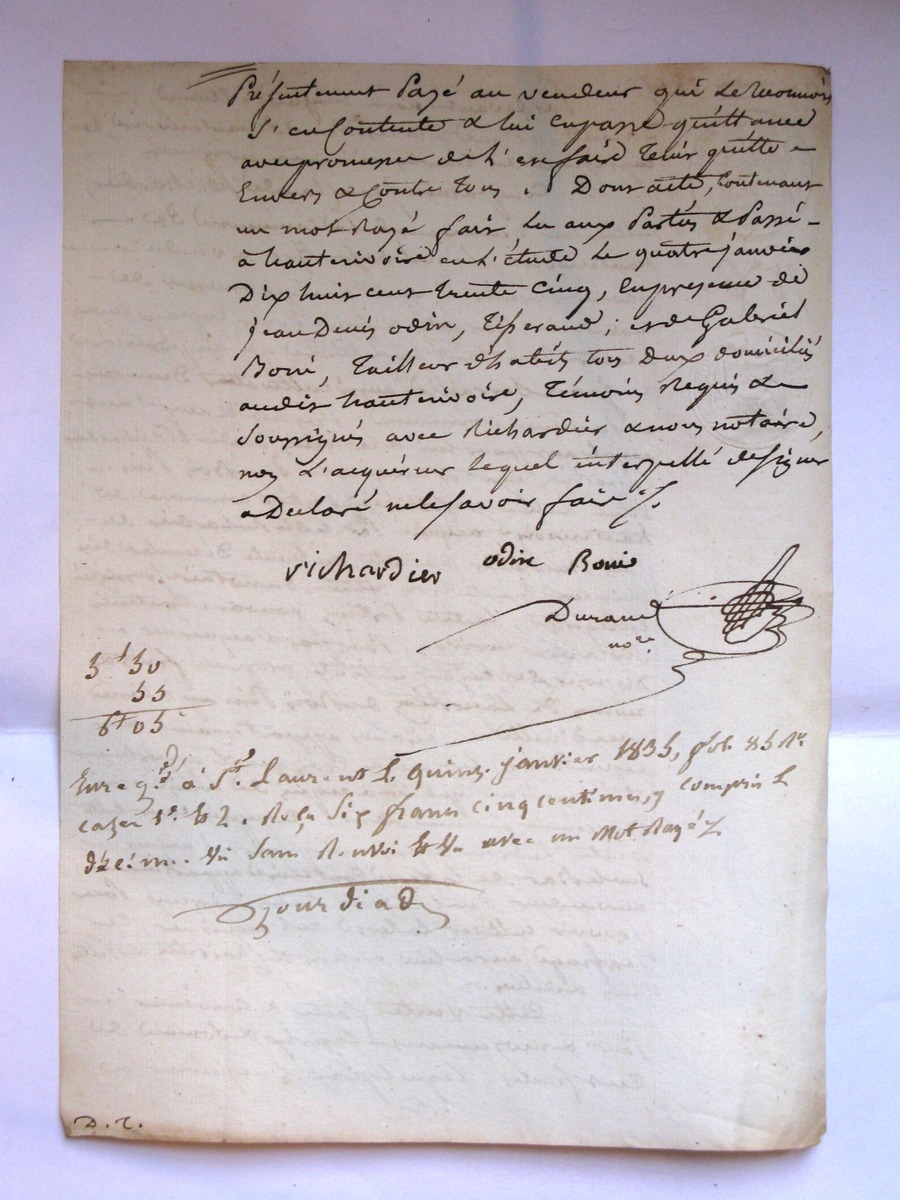 Présentement Payé au vendeur qui le reconnois
S'en Contente & lui en passe quittance
avec promesse de l'en faire tenir quitte
Envers & Contre tous. Dont acte, Contenant
un mot Rayé fait lu aux Parties & Passé
à hauterivoire en l'étude le quatre janvier
Dix huit cent trente cinq, En presence de
jean Denis odin, Tisserand; et de Gabriel
Boni, tailleur d'habits tous deux domiciliés
audit hauterivoire, témoins Requis &
Soussignés avec Richardier & nous notaire,
non L'acquéreur lequel interpellé de signer
a Déclaré ne le savoir faire
richardier odin
Durand
nore.
5f 50
55
6f 05
Enregé. à St. Laurent le quinze janvier 1835, fol. 85 Ro.
cases 1re. et 2. Reçu Six francs cinq centimes, y compris le
décime. Vu Sans Renvoi et avec un Mot Rayé
D.T.